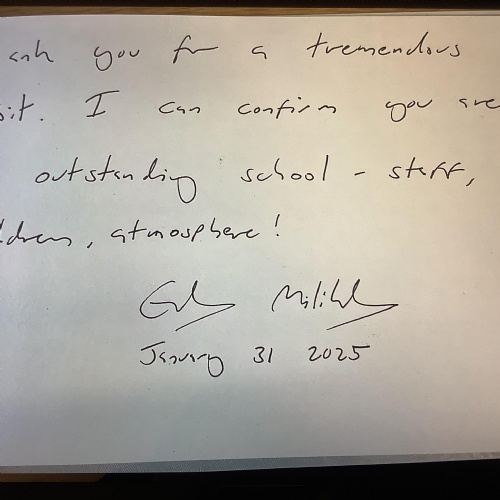 ank you for a tremendous
sit. I can confirm you are
outstanding school - staff,
ldren, atmosphere!
January 31 2025